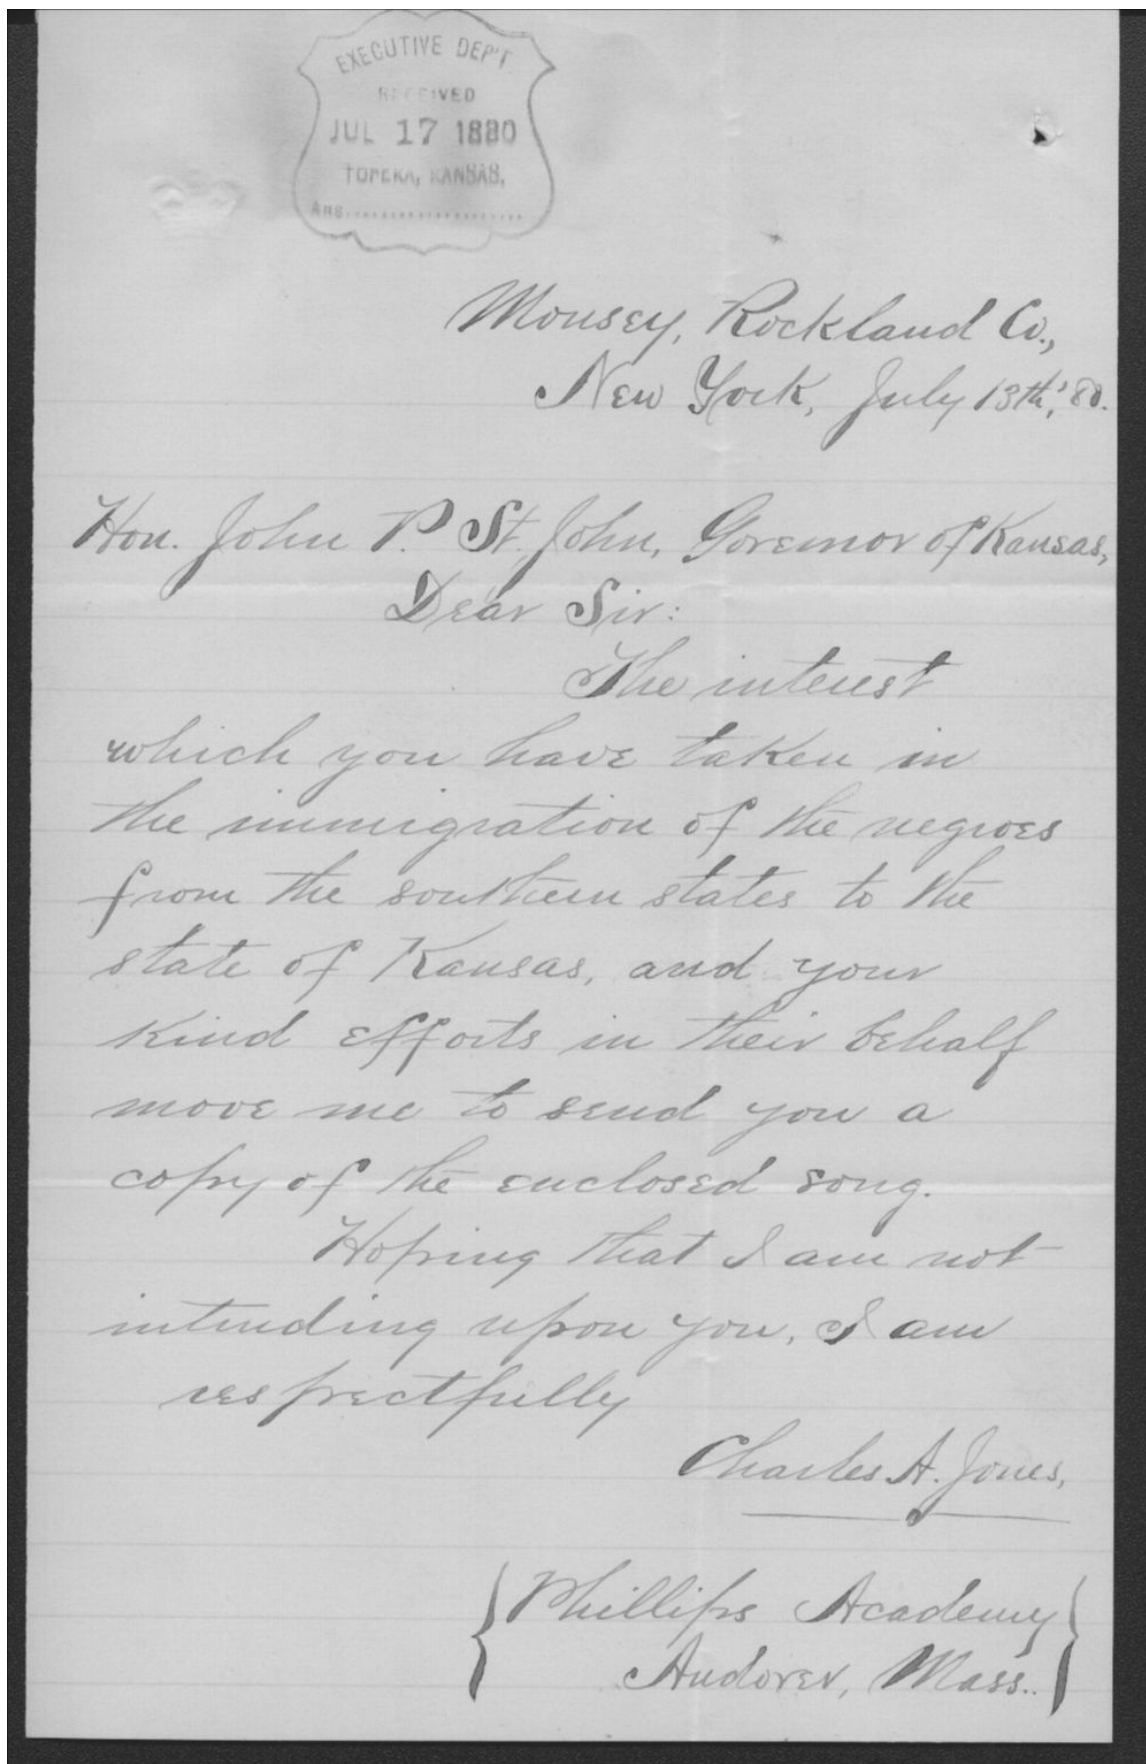 EXECUTIVE DEP'T
RECEIVED
JUL 17 1880
TOPEKA, KANSAS.
Ans......................
Monsey, Rockland Co.,
New York, July 13th, '80.
Hon. John P. St. John, Governor of Kansas,
Dear Sir:
The interest
which you have taken in
the immigration of the negroes
from the southern states to the
state of Kansas, and your
kind efforts in their behalf
move me to send you a
copy of the enclosed song.
Hoping that I am not
intruding upon you, I am
respectfully
Charles A. Jones,
Phillips Academy
Andover, Mass.